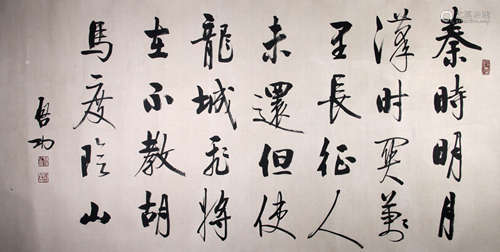 秦時明月
漢时関萬
里長征人
未還但使
龍城飛將
在不教胡
馬度陰山
啓功